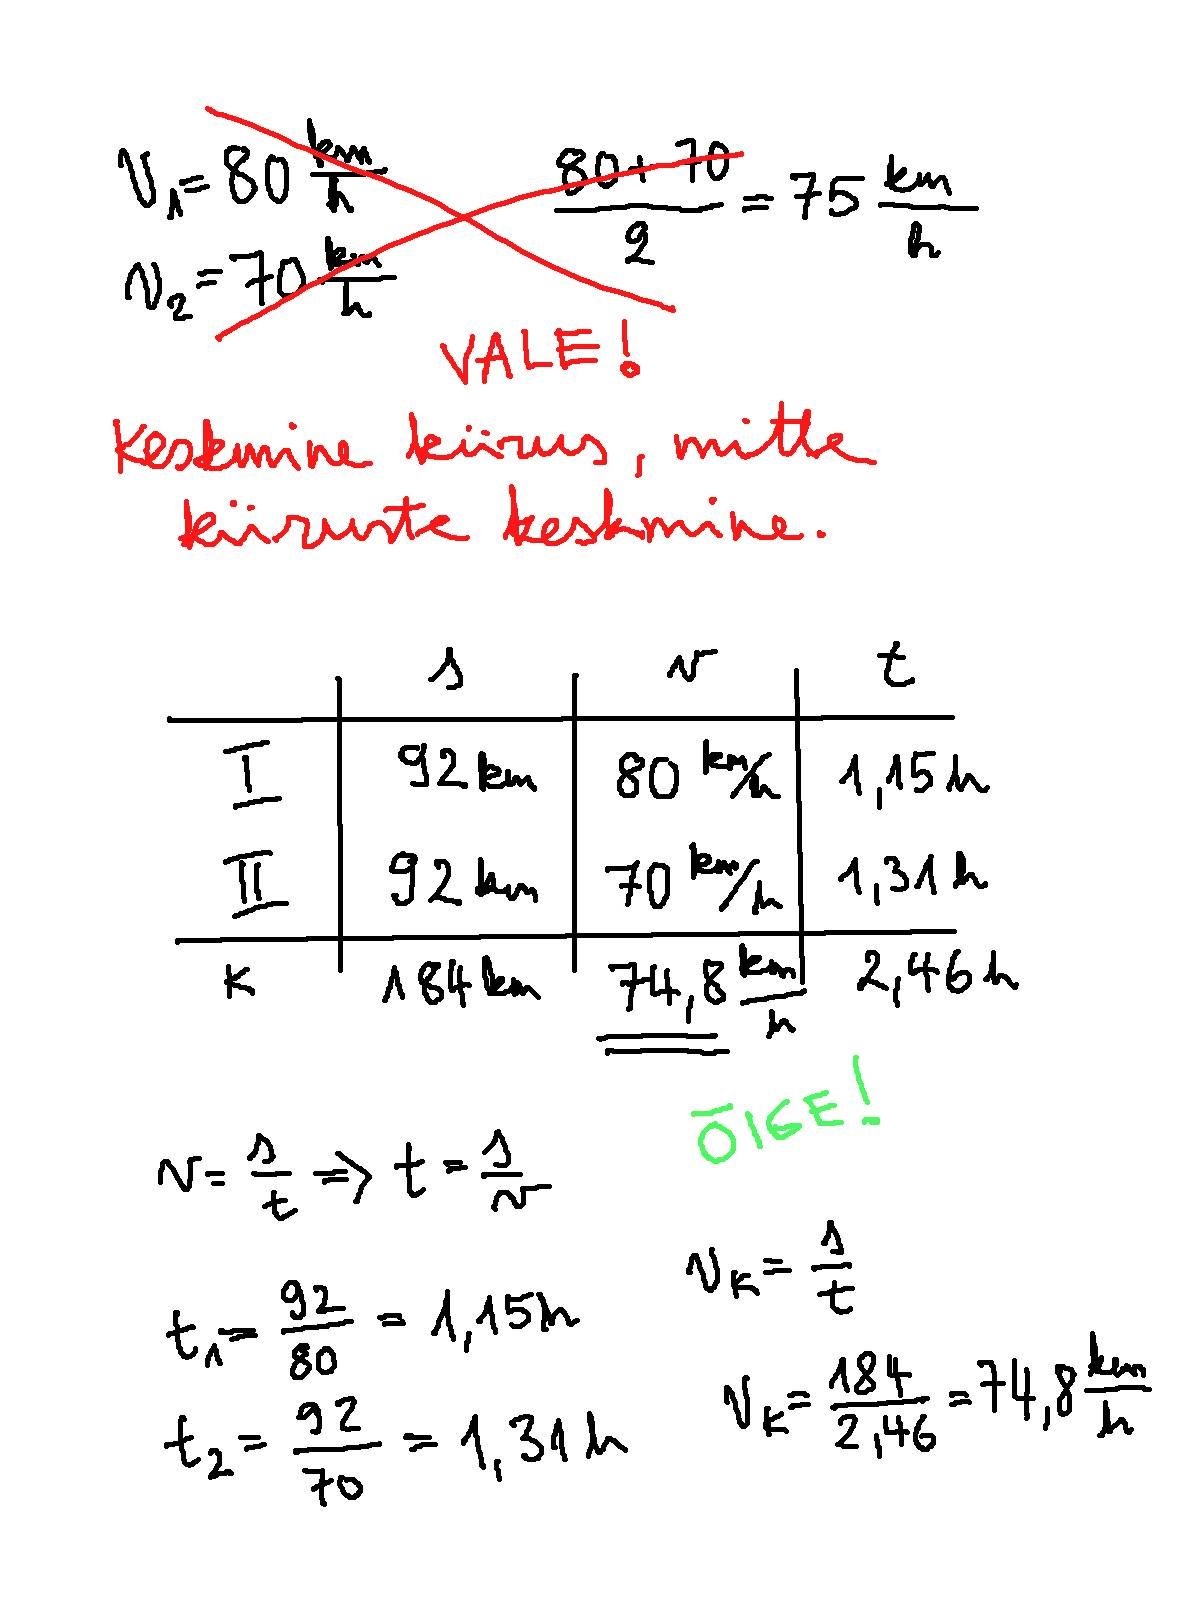 V₁ = 80 km/h (80 + 70)/2 = 75 km/h
v₂ = 70 km/h
VALE!
Keskmine kiirus, mitte
kiiruste keskmine.
s v t
I 92 km 80 km/h 1,15 h
II 92 km 70 km/h 1,31 h
K 184 km 74,8 km/h 2,46 h
ÕIGE!
v = s/t => t = s/v
v_K = s/t
t₁ = 92/80 = 1,15 h
v_K = 184/2,46 = 74,8 km/h
t₂ = 92/70 = 1,31 h